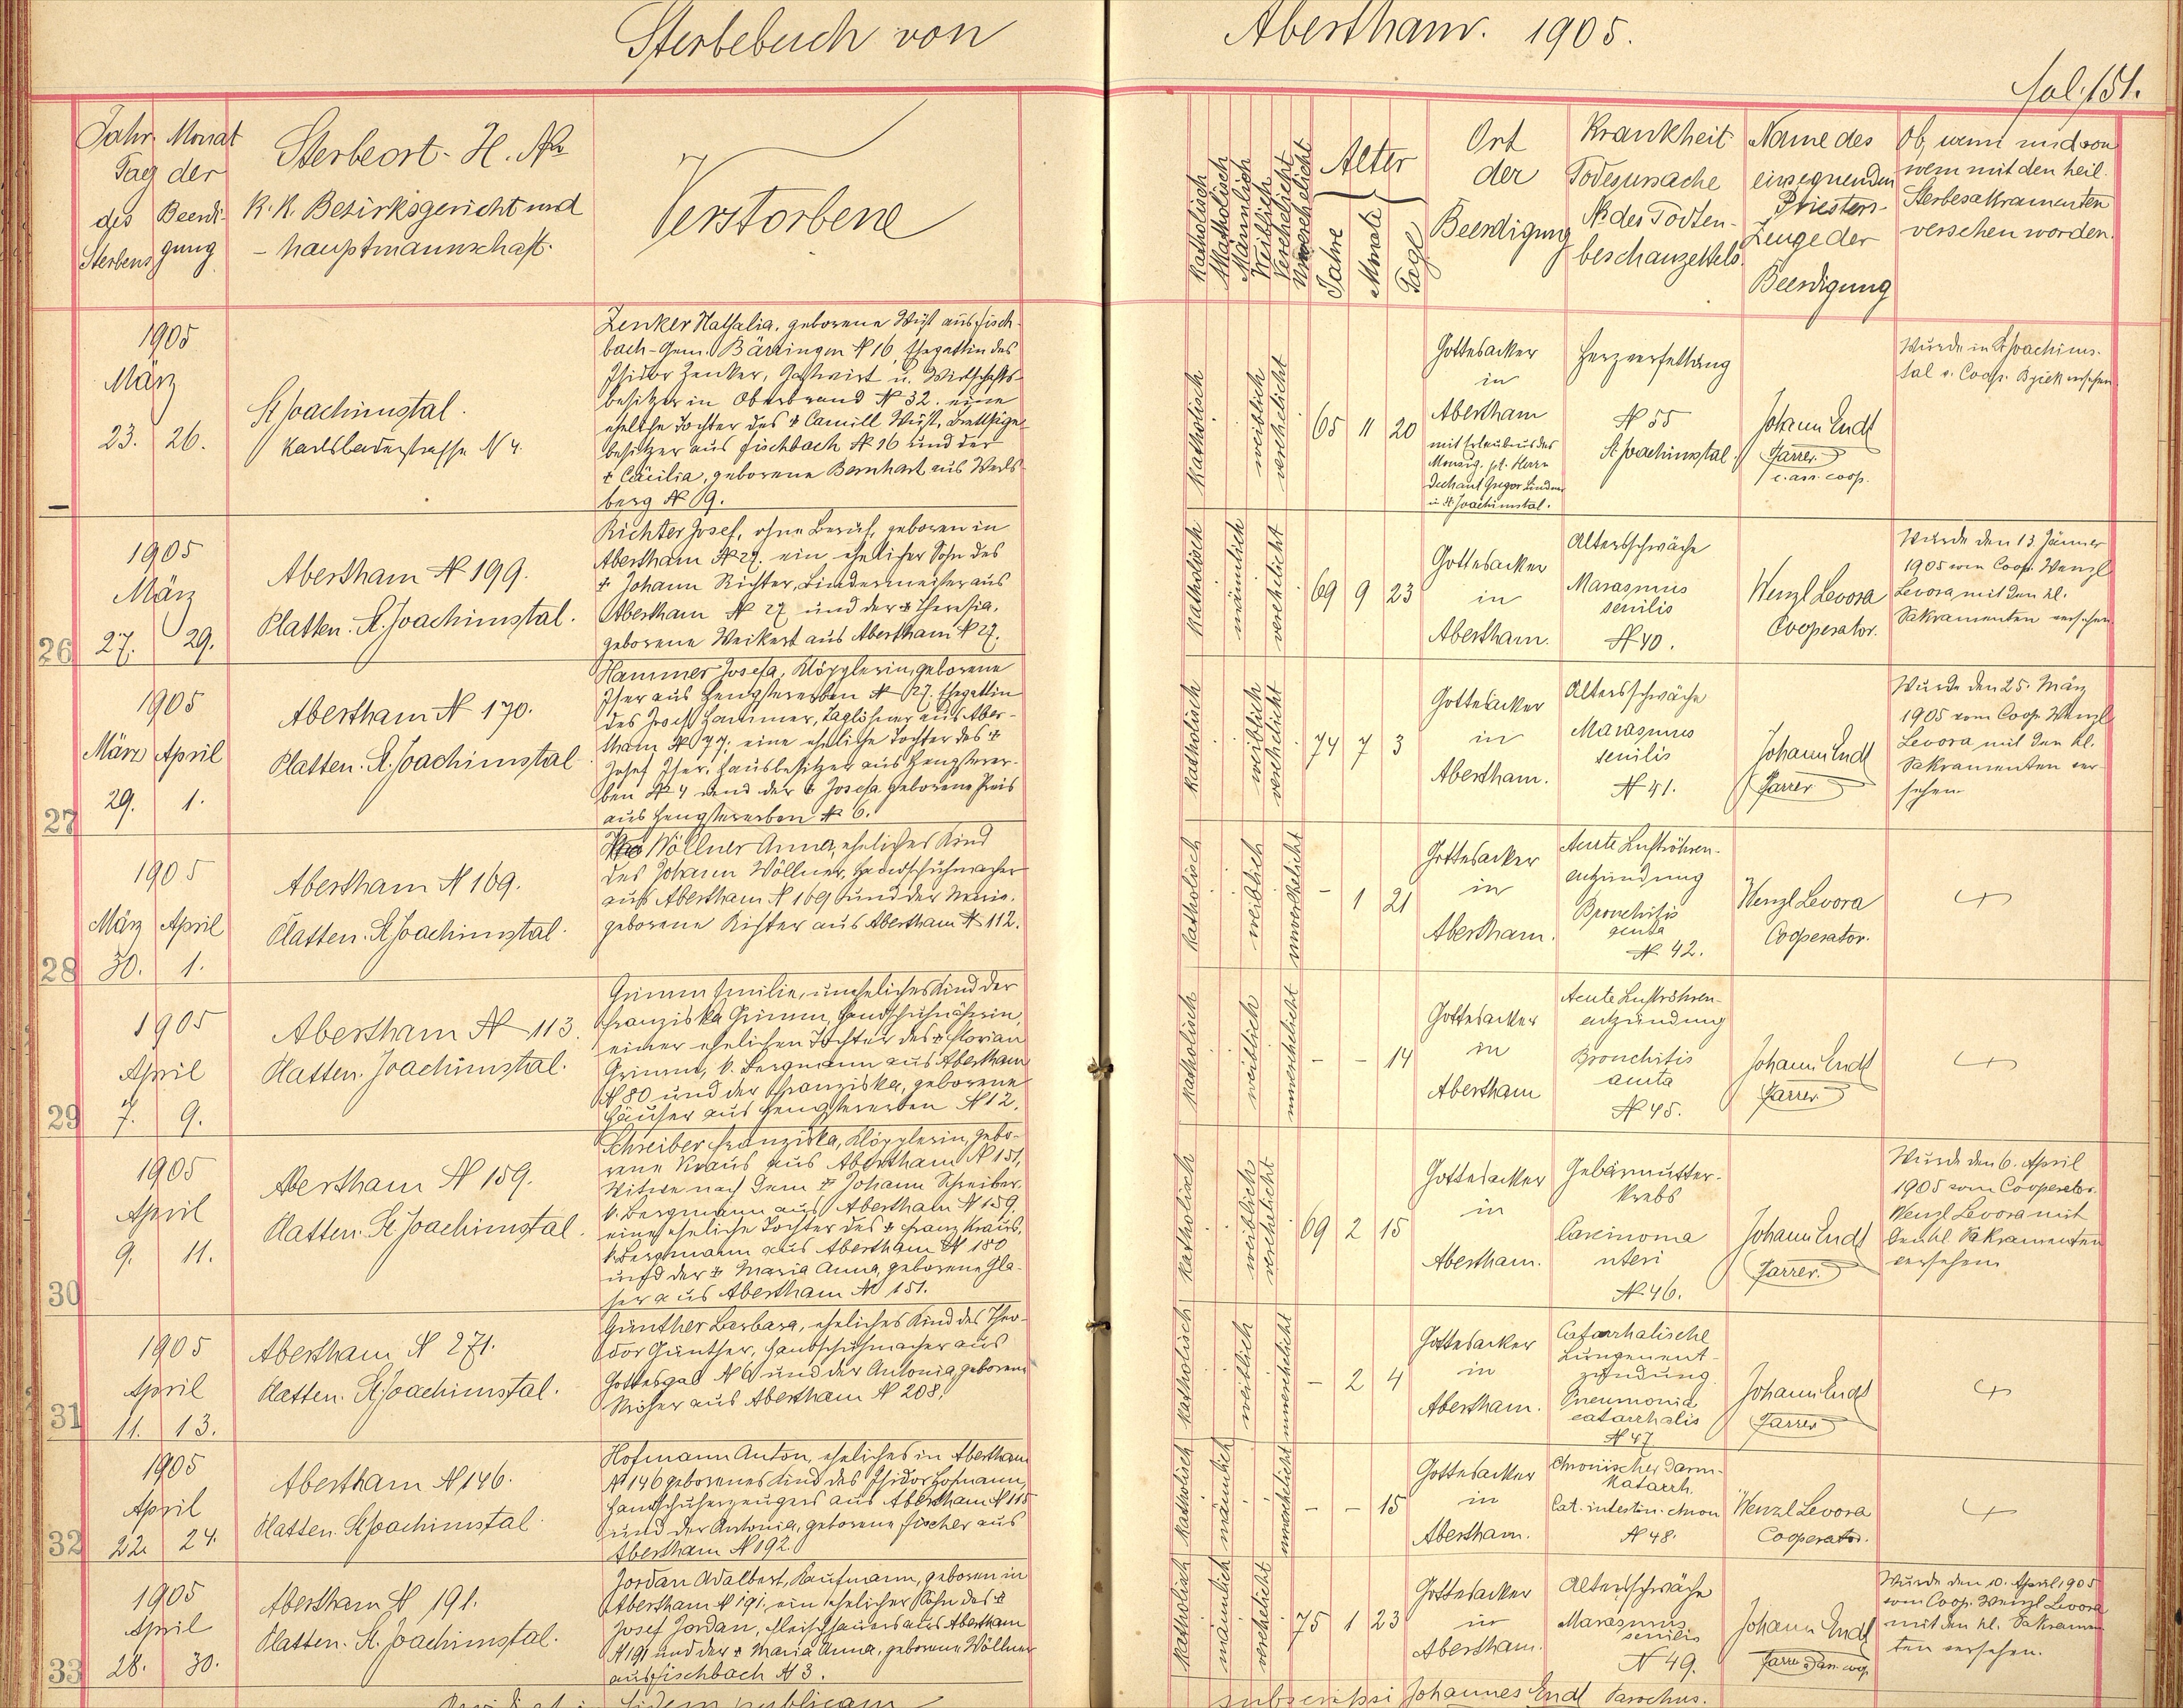 Sterbebuch von Abertham. 1905.
fol. 151.
Jahr Monat
Tag der
des Beerdi-
Sterbens gung
Sterbeort - H. No
K. K. Bezirksgericht und
- hauptmannschaft.
Verstorbene
Katholisch
Akatholisch
Männlich
Weiblich
Verehelicht
Unverehelicht
Alter
Jahre
Monate
Tage
Ort
der
Beerdigung
Krankheit
Todesursache
No des Todten-
beschauzettels.
Name des
einsegnenden
Priesters-
Zeuge der
Beerdigung
Ob, wann und von
wem mit den heil.
Sterbesakramenten
versehen worden.
1905
März
23. 26.
St Joachimstal.
Karlsbaderstrasse N 4.
Zenker Nathalia, geborene Wüst aus Fisch-
bach - Gem. Bärringen N 16, Ehegattin des
Isidor Zenker, Gastwirt u. Wirtschafts-
besitzer in Oberbrand N 32. eine
eheliche Tochter des † Camill Wüst,
besitzer aus Fischbach N 16 und der
† Cäcilia, geborene Bernhart aus Werls-
berg N 9.
katholisch
weiblich
verehelicht
65 11 20
Gottesacker
in
Abertham
mit Erlaubnis des
Monsig. pt. Herrn
Dechant Gregor Lindner
in St. Joachimstal.
Herzverfettung
N 55
St Joachimstal.
Johann Endt
Pfarrer
c. ass. coop.
Wurde in St Joachims-
tal v. Coop. versehen
26
1905
März
27. 29.
Abertham N 199.
Platten. St. Joachimstal.
Richter Josef, ohne Beruf, geboren in
Abertham N 27. ein ehelicher Sohn des
† Johann Richter, Bindermeister aus
Abertham N 27 und der † Theresia,
geborene Weikert aus Abertham N 27.
katholisch
männlich
verehelicht
69 9 23
Gottesacker
in
Abertham.
Altersschwäche
Marasmus
senilis
N 40.
Wenzl Levora
Cooperator.
Wurde den 13 Jänner
1905 vom Coop. Wenzl
Levora mit den hl.
Sakramenten versehen
27
1905
März April
29. 1.
Abertham N 170.
Platten. St. Joachimstal
Hammer Josefa, Klöpplerin, geborene
Iser aus Hengstererben N 27. Ehegattin
des Josef Hammer, Taglöhner aus Aber-
tham N 77; eine eheliche Tochter des †
Josef Iser, Hausbesitzer aus Hengsterer-
ben N 4 und der † Josefa geborene Preis
aus Hengstererben N 6.
katholisch
weiblich
verehelicht
74 7 3
Gottesacker
in
Abertham.
Altersschwäche
Marasmus
senilis
N 41.
Johann Endt
Pfarrer
Wurde den 25. März
1905 vom Coop. Wenzl
Levora mit den hl.
Sakramenten ver-
sehen
28
1905
März April
30. 1.
Abertham N 169.
Platten. St Joachimstal.
Wöllner Anna, eheliches Kind
des Johann Wöllner, Handschuhmacher
aus Abertham N 169 und der Marie,
geborene Richter aus Abertham N 112.
katholisch
weiblich
unverehelicht
- 1 21
Gottesacker
in
Abertham.
Acute Luftröhren-
entzündung
Bronchitis
acuta
N 42.
Wenzl Levora
Cooperator.
+
29
1905
April
7. 9.
Abertham N 113.
Platten. Joachimstal.
Grimm Emilie, uneheliches Kind der
Franziska Grimm, Handschuhnäherin,
einer ehelichen Tochter des † Florian
Grimm, k. Bergmann aus Abertham
N 80 und der Franziska, geborene
Häuser aus Hengstererben N 12.
katholisch
weiblich
unverehelicht
- - 14
Gottesacker
in
Abertham
Acute Luftröhren-
entzündung
Bronchitis
acuta
N 45.
Johann Endt
Pfarrer
+
30
1905
April
9. 11.
Abertham N 159.
Platten. St Joachimstal.
Schreiber Franziska, Klöpplerin, gebo-
rene Kraus aus Abertham N 151,
Witwe nach dem † Johann Schreiber,
k. Bergmann aus Abertham N 159,
eine eheliche Tochter des † Franz Kraus,
k. Bergmann aus Abertham N 180
und der † Maria Anna, geborene Gla-
ser aus Abertham N 151.
katholisch
weiblich
verehelicht
69 2 15
Gottesacker
in
Abertham.
Gebärmutter-
krebs
Carcinoma
uteri
N 46.
Johann Endt
Pfarrer.
Wurde den 6. April
1905 vom Cooperator
Wenzl Levora mit
den hl. Sakramenten
versehen
31
1905
April
11. 13.
Abertham N 271.
Platten. St Joachimstal.
Günther Barbara, eheliches Kind des Theo-
dor Günther, Handschuhmacher aus
Gottesgab N 6 und der Antonia, geborene
aus Abertham N 208.
katholisch
weiblich
unverehelicht
- 2 4
Gottesacker
in
Abertham.
Catarrhalische
Lungenent-
zündung.
Pneumonia
catarrhalis
N 47
Johann Endt
Pfarrer
+
32
1905
April
22. 24.
Abertham N 146.
Platten. St Joachimstal
Hofmann Anton, eheliches in Abertham
N 146 geborenes Kind des Isidor Hofmann,
Handschuherzeugers aus Abertham N 115
und der Antonia, geborene Fischer aus
Abertham N 192.
katholisch
männlich
unverehelicht
- - 15
Gottesacker
in
Abertham.
Chronischer Darm-
katarrh.
Cat. intestin. chron
N 48.
Wenzl Levora
Cooperator.
+
33
1905
April
28. 30.
Abertham N 191.
Platten. St. Joachimstal.
Jordan Adalbert, Kaufmann, geboren in
Abertham N 191, ein ehelicher Sohn des †
Josef Jordan, Fleischhauers aus Abertham
N 191 und der † Maria Anna, geborene Wöllner
aus Fischbach N 3.
katholisch
männlich
verehelicht
75 1 23
Gottesacker
in
Abertham.
Altersschwäche
Marasmus
senilis
N 49.
Johann Endt
Wurde den 10. April 1905
vom Coop. Wenzl Levora
mit den hl. Sakramen-
ten versehen.
fidem publicam
subscripsi Johannes Endt Parochus.